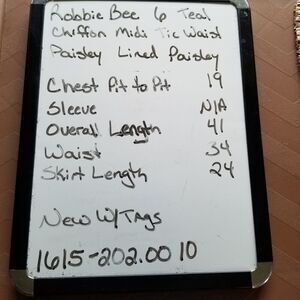 Robbie Bee 6 Teal
Chiffon Midi Tie Waist
Paisley Lined Paisley
Chest Pit to Pit 19
Sleeve N/A
Overall Length 41
Waist 34
Skirt Length 24
New W/Tags
1615-202.00 10